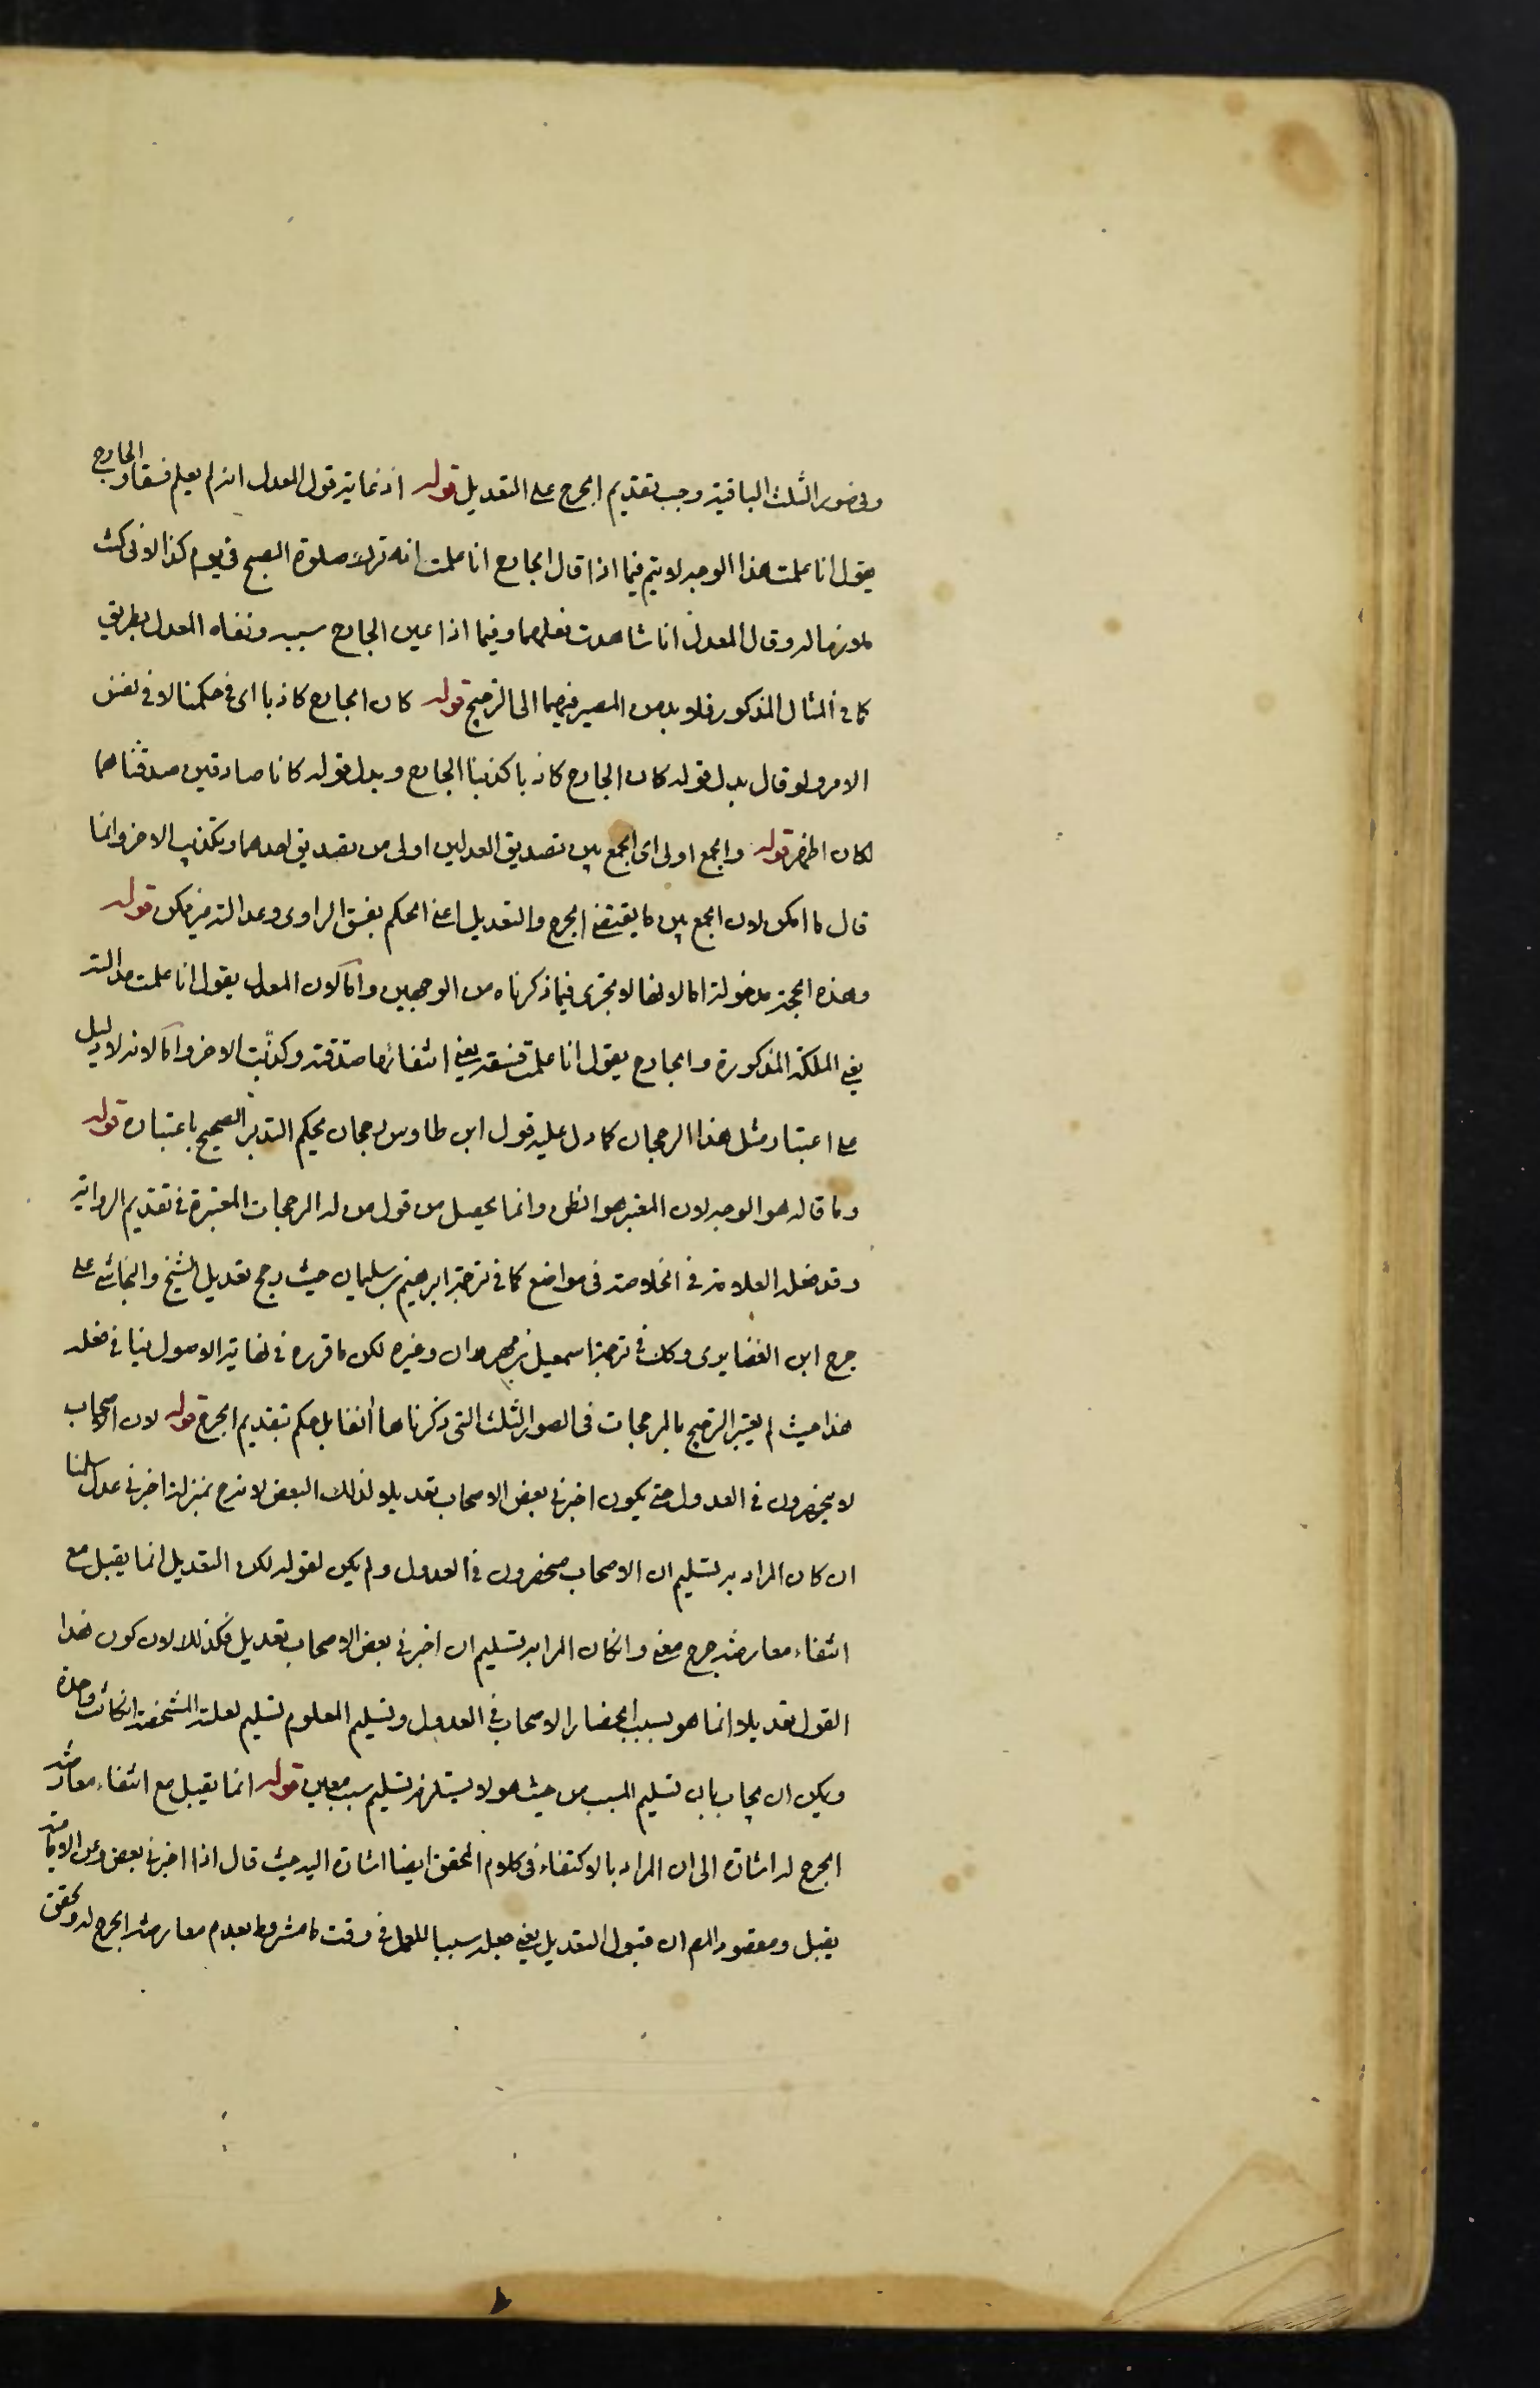 وفي صور الثلث الباقية وجب تقديم الجرح على التعديل قوله اذ غاية قول المعدل انه لم يعلم فسقا والجارح
يقول انا علمت هذا الوجه لا يتم فيما اذا قال الجارح انا علمت انه ترك صلوة الصبح في يوم كذا لاني كنت
ملازما له وقال المعدل انا شاهدت فعلهما وفيما اذا عين الجارح سببه ونفاه المعدل بطريق
كما في المثال المذكور فلا بد من المصير فيهما الى الترجيح قوله كان الجارح كاذبا اى في حكمنا لا في نفس
الامر ولو قال بدل قوله كان الجارح كاذبا كذبنا الجارح وبدل قوله كانا صادقين صدقناهما
لكان اظهر قوله والجمع اولى اى الجمع بين تصديق العدلين اولى من تصديق احدهما وتكذيب الاخر وانما
قال ما امكن لان الجمع بين ما يقتضى الجرح والتعديل اعنى الحكم بفسق الراوى وعدالته غير ممكن قوله
وهذه الحجة مدخولة اما لانها لا تجرى فيما ذكرناه من الوجهين واما لان المعدل يقول انا علمت عدالته
يعنى الملكة المذكورة والجارح يقول انا علمت فسقه يعنى انتفائها صدقته وكذبت الاخر واما لانه لا دليل
على اعتبار مثل هذا الرجحان كما دل عليه قول ابن طاوس رجحان يحكم التدبر الصحيح باعتباره قوله
وما قاله هو الوجه لان المعتبر هو الظن وانما يحصل من قول من له المرجحات المعتبرة في تقديم الرواية
وقد فعله العلامة في الخلاصة في مواضع كما في ترجمة ابرهيم بن سليمان حيث رجح تعديل الشيخ والنجاشى على
جرح ابن الغضايرى وكذا في ترجمة اسمعيل بن مهران وغيره لكن ما قرره في نهاية الاصول ينافي فعله
هذا حيث لم يعتبر الترجيح بالمرجحات في الصور الثلث التى ذكرناها آنفا بل حكم بتقديم الجرح قوله لان الاصحاب
لا ينحصرون في العدول حتى يكون اخبرني بعض الاصحاب تعديلا لذلك البعض لاندرج بمنزلة اخبرني عدل سلمنا
ان كان المراد به تسليم ان الاصحاب منحصرون في العدول ولم يكن لقوله لكن التعديل انما يقبل مع
انتفاء معارضة جرح معنى وان كان المراد به تسليم ان اخبرني بعض الاصحاب تعديل فكذلك لان كون هذا
القول تعديلا انما هو بسبب انحصار الاصحاب في العدول وتسليم المعلوم تسليم لعلته المشخصة ان كانت واحدة
ويمكن ان يجاب بان تسليم المسبب من حيث هو لا يستلزم تسليم سبب معين قوله انما يقبل مع انتفاء معارضة
الجرح له اشارة الى ان المراد بالاكتفاء في كلام المحقق ايضا اشارة اليه حيث قال اذا اخبرني بعض وعن الامامية
يقبل ومقصود المص ان قبول التعديل يعنى جعله سببا للعمل في وقت ما مشروط بعدم معارضة الجرح له وتحقق